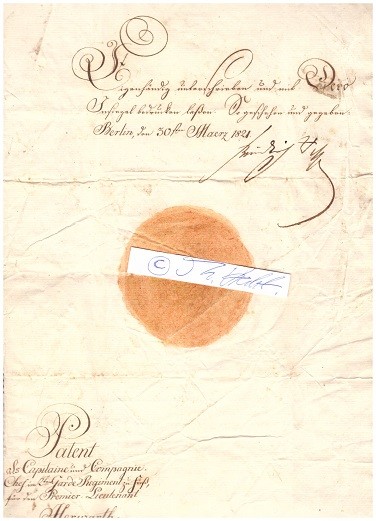 Eigenhändig unterschrieben und mit Dero
Insiegel bedrucken laßen. So geschehen und gegeben
Berlin, den 30ten Maerz 1821
Friedrich
©
Patent
als Capitaine und Compagnie.
Chef im 2t Garde Regiment zu Fuß,
für den Premier-Lieutenant
Herwarth